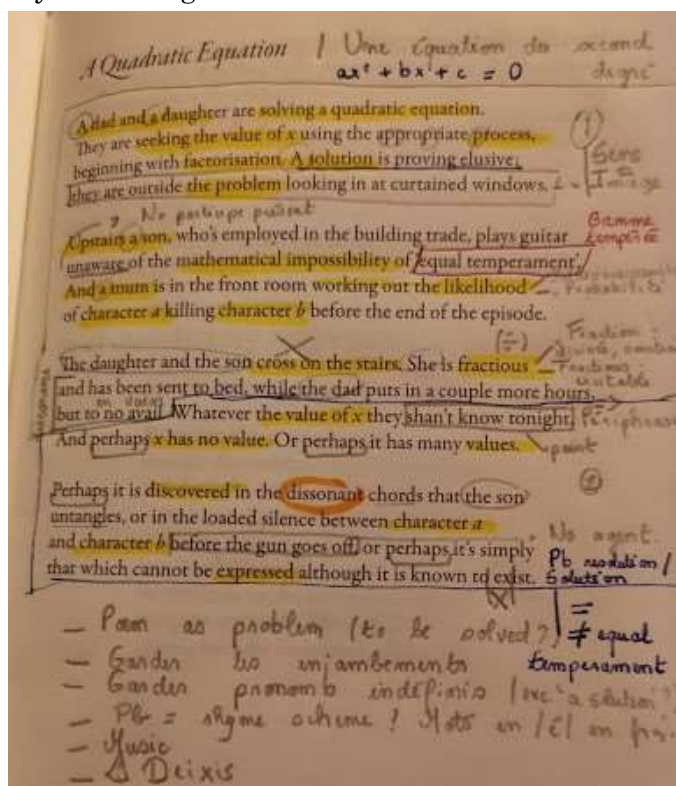 A Quadratic Equation / Une équation du second degré
ax² + bx + c = 0
A dad and a daughter are solving a quadratic equation.
They are seeking the value of x using the appropriate process,
beginning with factorisation. A solution is proving elusive;
they are outside the problem looking in at curtained windows.
①
Sens
Image
No participe présent
Upstairs a son, who's employed in the building trade, plays guitar
Gamme tempérée
unaware of the mathematical impossibility of 'equal temperament'.
And a mum is in the front room working out the likelihood
Probabilité
of character a killing character b before the end of the episode.
The daughter and the son cross on the stairs. She is fractious
Fraction
and has been sent to bed, while the dad puts in a couple more hours,
but to no avail. Whatever the value of x they shan't know tonight.
en vain
And perhaps x has no value. Or perhaps it has many values.
point
②
Perhaps it is discovered in the dissonant chords that the son
untangles, or in the loaded silence between character a
and character b before the gun goes off, or perhaps it's simply
No agent
that which cannot be expressed although it is known to exist.
Pb resolution /
Solution
=
≠ equal
temperament
— Poem as problem (to be solved?)
— Garder les enjambements
— Garder pronoms indéfinis / exc "a solution"?
— Pb = rhyme scheme ? Mots en /E/ en
— Music
— Δ Deixis